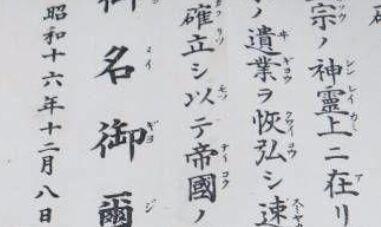 宗ノ神靈上ニ在リ
ノ遺業ヲ恢弘シ速
確立シ以テ帝國ノ
御名御爾
昭和十六年十二月八日